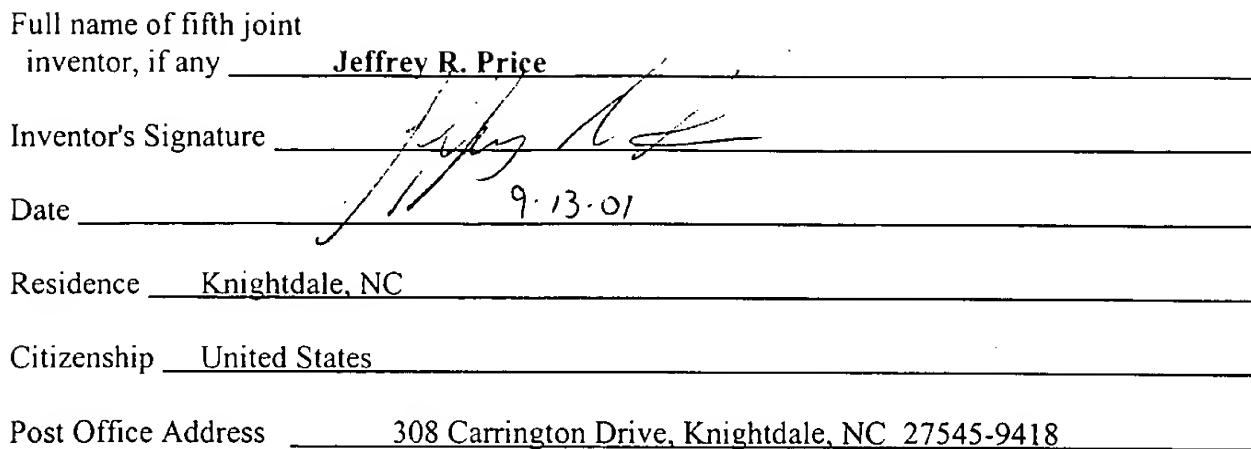 Full name of fifth joint
inventor, if any Jeffrey R. Price
Inventor's Signature
Date 9-13-01
Residence Knightdale, NC
Citizenship United States
Post Office Address 308 Carrington Drive, Knightdale, NC 27545-9418